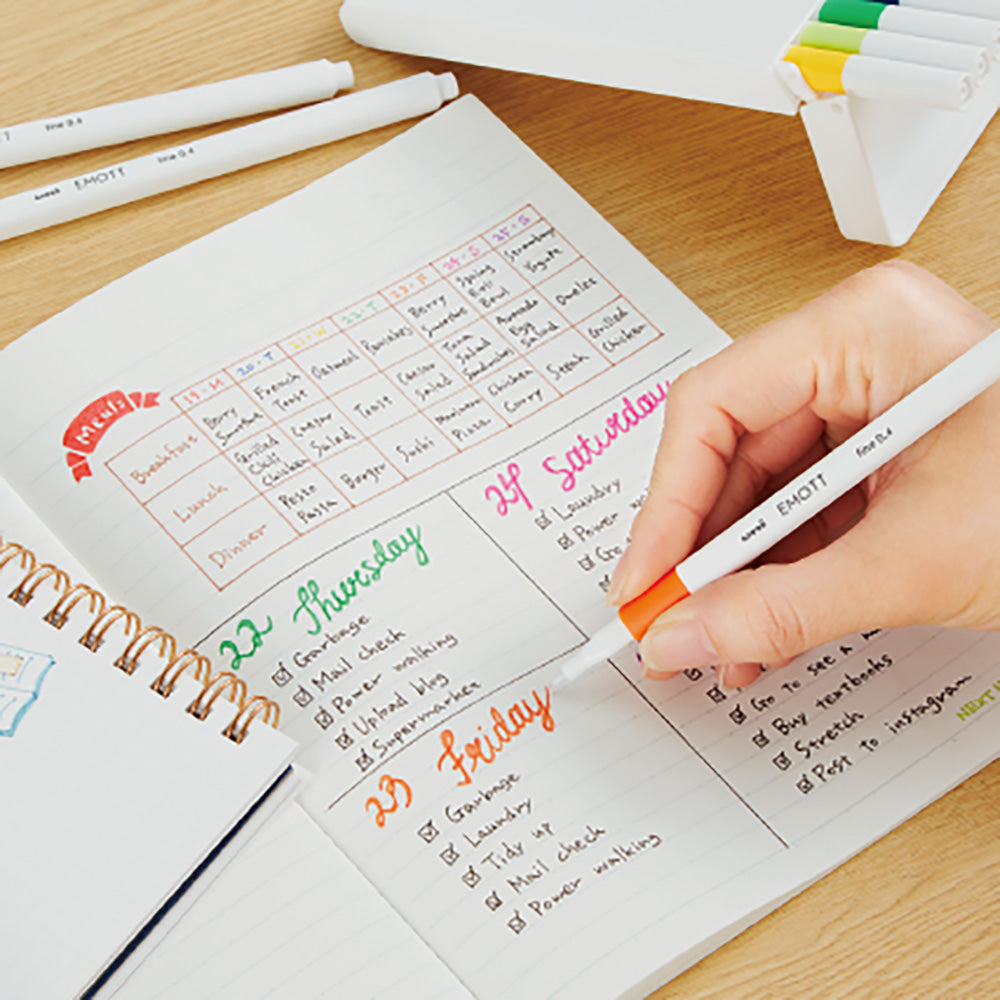 fine 0.4
uni EMOTT fine 0.4
Meals
19・M 20・T 21・W 22・T 23・F 24・S 25・S
Breakfast Berry Smoothie French Toast Oatmeal Pancakes Berry Smoothie Spring Roll Bowl Strawberry Yogurt
Lunch Grilled Chicken Caesar Salad Toast Caesar Salad Tuna Salad Sandwiches Avocado Egg Salad Omelet
Dinner Pesto Pasta Burger Sushi Pizza Chicken Curry Steak Grilled Chicken
24 Saturday
Laundry
Power
Go
22 Thursday
Garbage
Mail check
Power walking
Upload blog
Supermarket
uni EMOTT fine 0.4
23 Friday
Garbage
Laundry
Tidy up
Mail check
Power walking
Go to see a
Buy textbooks
Stretch
Post to instagram
NEXT